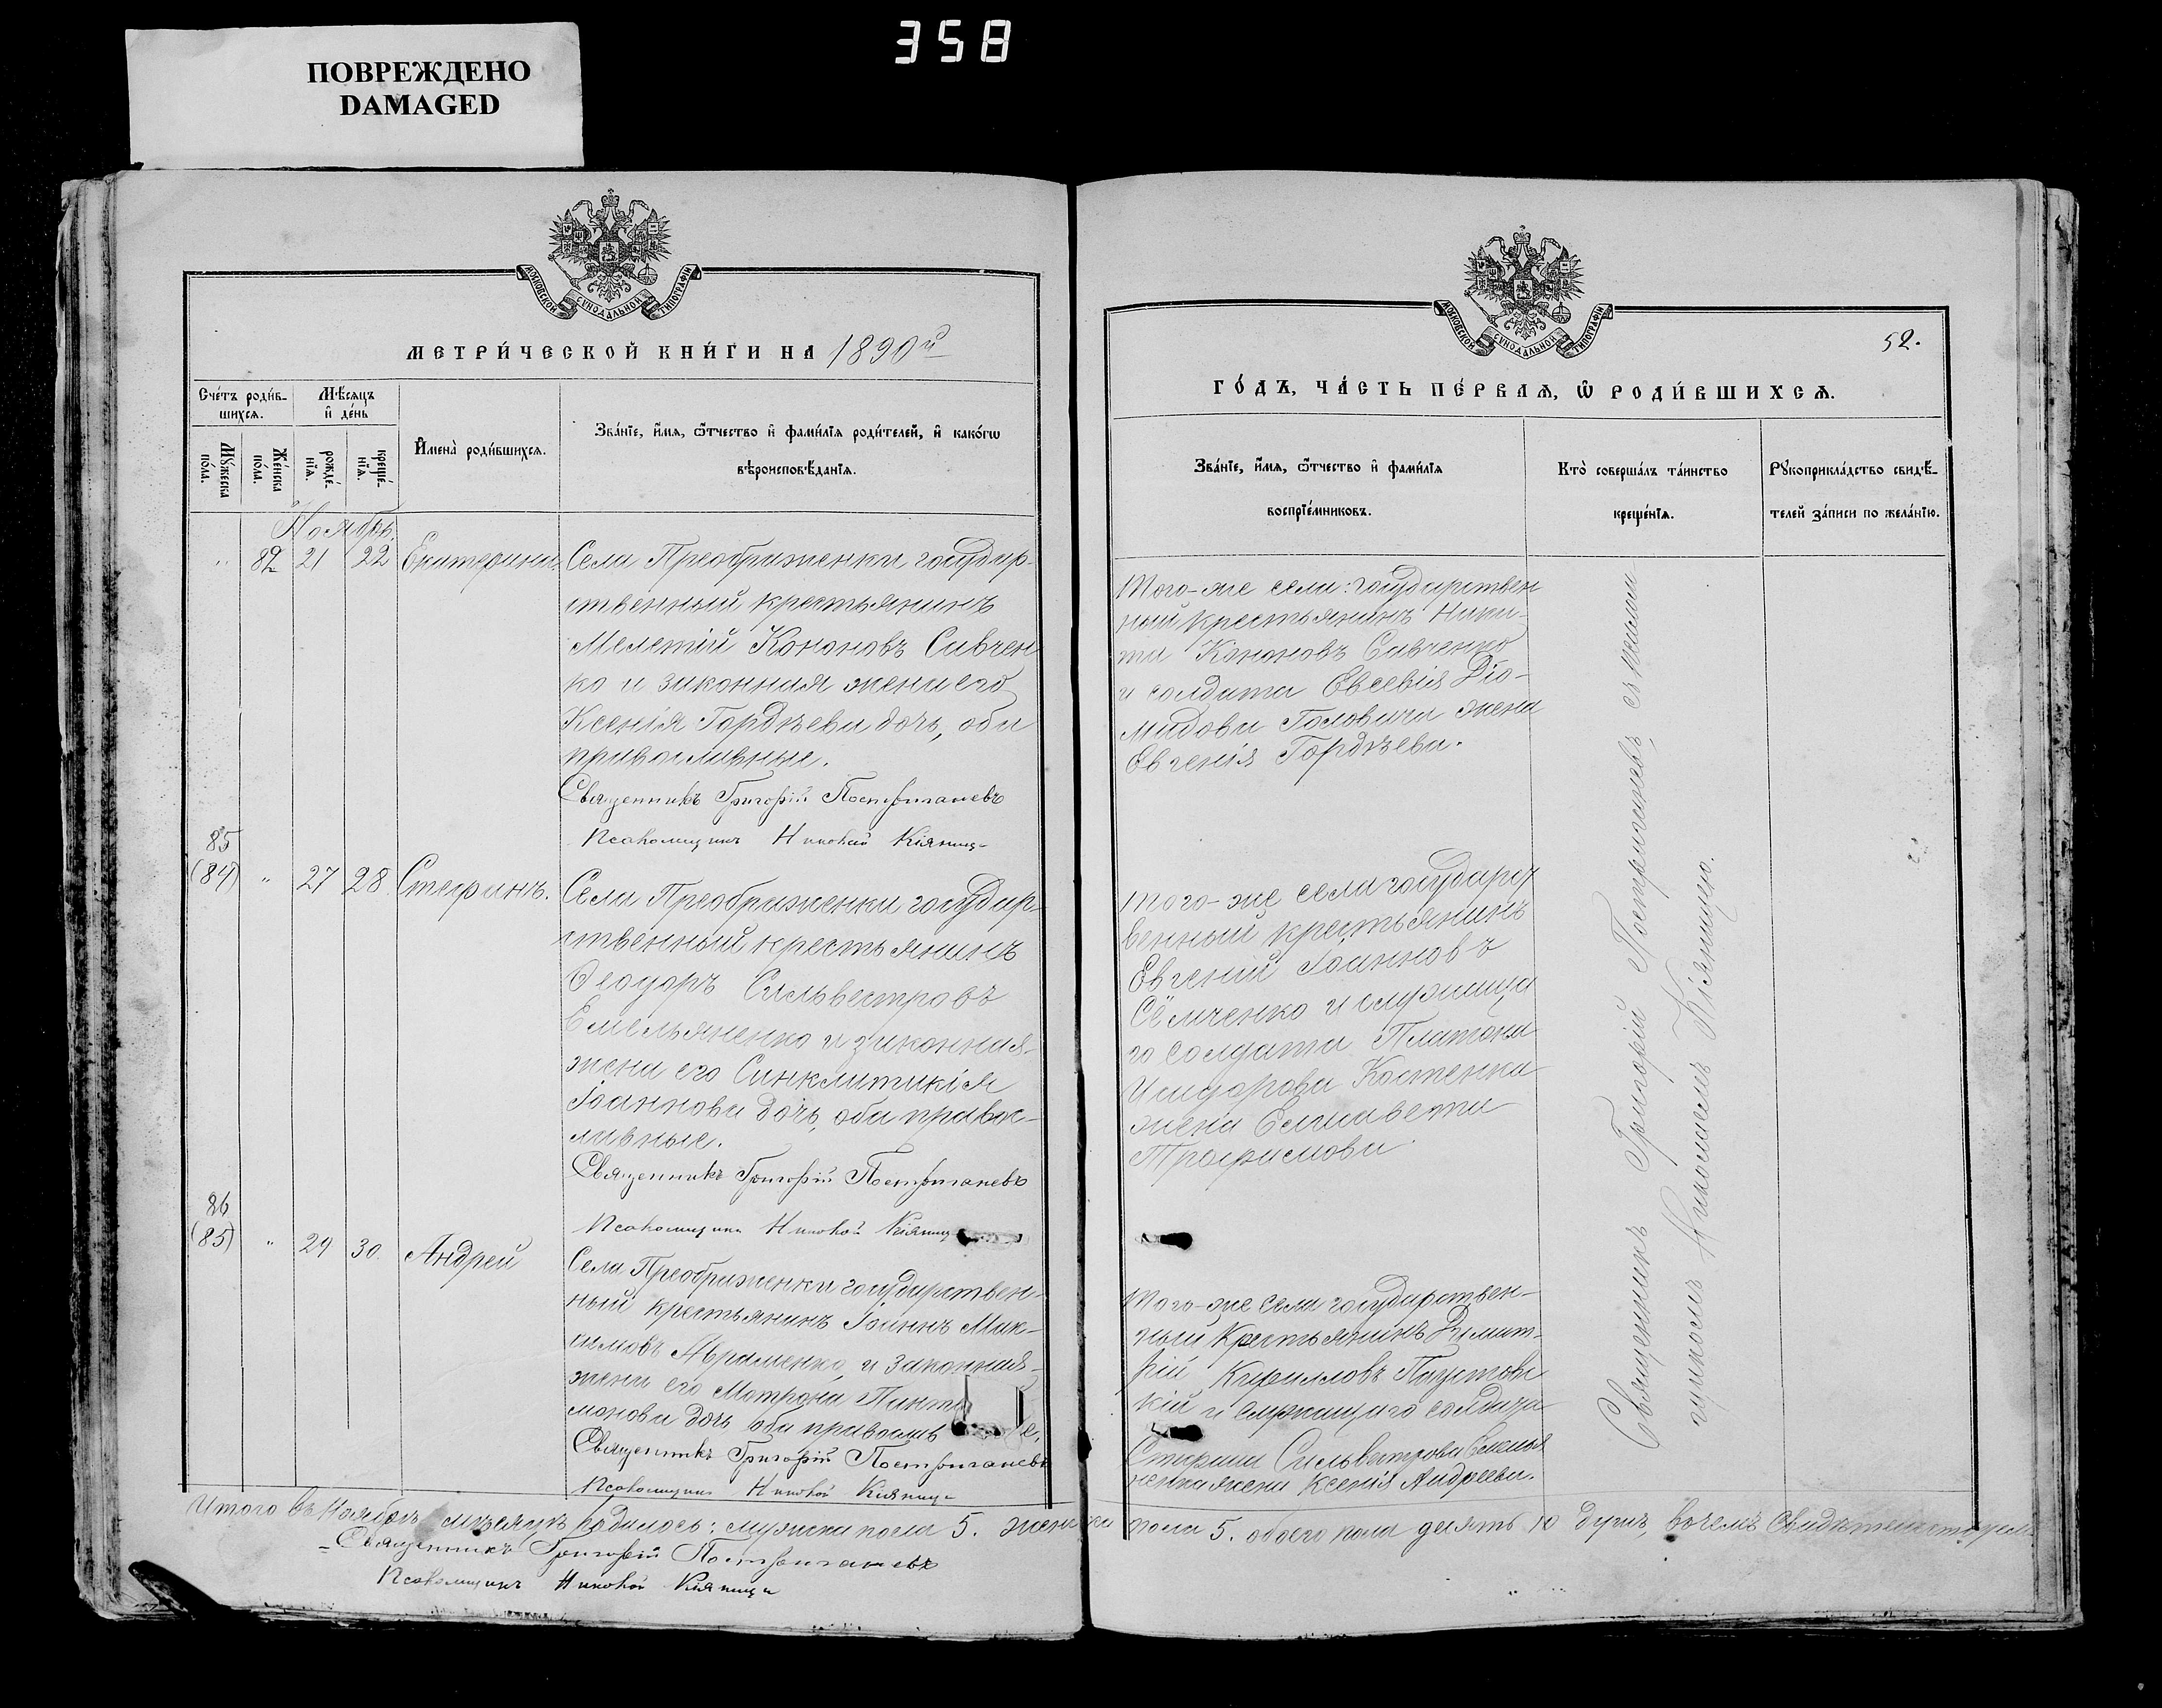 358
ПОВРЕЖДЕНО
DAMAGED
МОСКОВСКОЙ СѴНОДАЛЬНОЙ ТИПОГРАФІИ
МЕТРИ́ЧЕСКОЙ КНИ́ГИ НА 1890й
Сче́тъ роди́в-
шихсѧ.
Мѣ́сѧцъ
и҆ де́нь
Мꙋ́жеска по́ла.
Же́нска по́ла.
рожде́-
нїѧ.
креще́-
нїѧ.
И҆мена̀ роди́вшихсѧ.
Зва́нїе, и҆́мѧ, ѻ҆́тчество и҆ фами́лїѧ роди́телей, и҆ како́гѡ
вѣроисповѣ́данїѧ.
Ноябрь.
" 82 21 22 Екатерина
Села Преображенки государ-
ственный крестьянинъ
Мелетій Кононовъ Сивчен
ко и законная жена его
Ксенія Гордѣева дочь, оба
православные.
Священникъ Григорій Постригачевъ
Псаломщикъ Николай Кіяница
85
(84) " 27 28 Стефанъ.
Села Преображенки государ-
ственный крестьянинъ
Ѳеодоръ Сильвестровъ
Емельяненко и законная
жена его Синклитикія
Іоаннова дочь, оба правос-
лавные.
Священникъ Григорій Постригачевъ
Псаломщикъ Николай Кіяниц
86
(85) " 29 30. Андрей
Села Преображенки государствен-
ный крестьянинъ Іоаннъ Мак-
симовъ Авраменко, и законная
жена его Матрона Панте
монова дочь оба правосл е.
Священникъ Григорій Постригачевъ
Псаломщикъ Николай Кіяница
Итого въ Ноябрѣ мѣсяцѣ родилось: мужска пола 5. женска пола 5. обоего пола десять 10 душъ, въ чемъ свидѣтельствуемъ
Священникъ Григорій Постригачевъ
Псаломщикъ Николай Кіяница
МОСКОВСКОЙ СѴНОДАЛЬНОЙ ТИПОГРАФІИ
52.
ГО́ДЪ, ЧА́СТЬ ПЕ́РВАѦ, Ѡ҆ РОДИ́ВШИХСѦ.
Зва́нїе, и҆́мѧ, ѻ҆́тчество и҆ фами́лїѧ
воспрїе́мниковъ.
Кто̀ соверша́лъ та́инство
креще́нїѧ.
Рꙋкоприкла́дство свидѣ́-
телей за́писи по жела́нїю.
Того-же села: государствен
ный крестьянинъ Ники-
та Кононовъ Сивченко
и солдата Евсевія Діо-
мидова Головача жена
Евгенія Гордѣева.
Того-же села государст
венный крестьянинъ
Евгеній Іоанновъ
Сёмченко и служаща
го солдата Платона
Исидорова Костенка
жена Елисавета
Трофимова
Того-же села государствен-
ный крестьянинъ Димит-
рій Кирилловъ Паустовс
кій и служащаго солдата
Сильвестрова Емелья
ненка жена Ксенія Андреева.
Священникъ Григорій Постригачевъ, съ псалом
щикомъ Николаемъ Кіяницею.